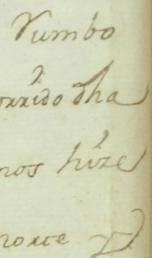 rumbo
orrido dha
nos hize
norte